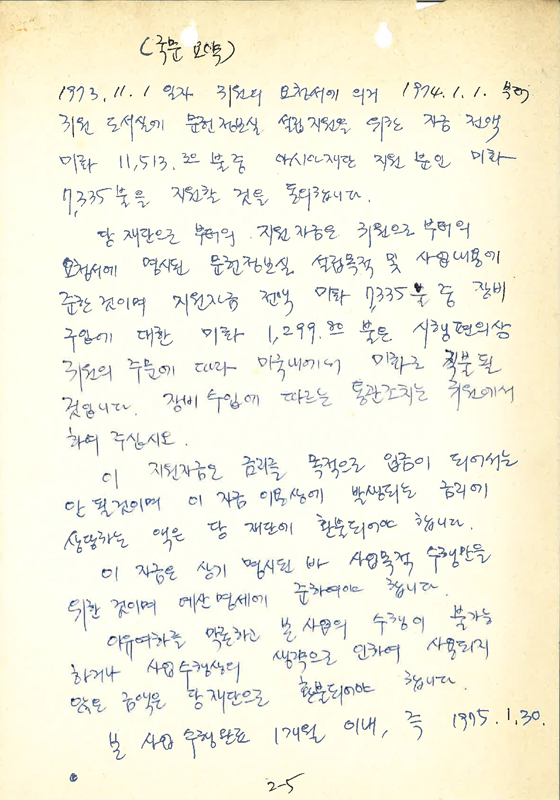 (국문 요약)
1973. 11. 1 일자 귀원의 요청서에 의거 1974. 1. 1. 부터
귀원 도서실에 문헌정보실 설립지원을 위한 자금 전액
미화 11,513.30 불 중 아시아재단 지원 분인 미화
7,335불을 지원할 것을 동의합니다.
당 재단으로 부터의 지원자금은 귀원으로 부터의
요청서에 명시된 문헌정보실 설립목적 및 사업내용에
준한 것이며 지원자금 전액 미화 7,335불 중 장비
구입에 대한 미화 1,299. 불은 시행편의상
귀원의 주문에 따라 미국내에서 미화로 직불될
것입니다. 장비 수입에 따르는 통관조치는 귀원에서
하여 주십시오.
이 지원자금은 금리를 목적으로 입금이 되어서는
안 될것이며 이 자금 이용상에 발생되는 금리에
상당하는 액은 당 재단에 환불되어야 합니다.
이 자금은 상기 명시된 바 사업목적 수행만을
위한 것이며 예산명세에 준하여야 합니다.
이유여하를 막론하고 본 사업의 수행이 불가능
하거나 사업수행상의 생략으로 인하여 사용되지
않은 금액은 당 재단으로 환불되어야 합니다.
본 사업 수행완료 1개월 이내, 즉 1975. 1. 30.
2-5